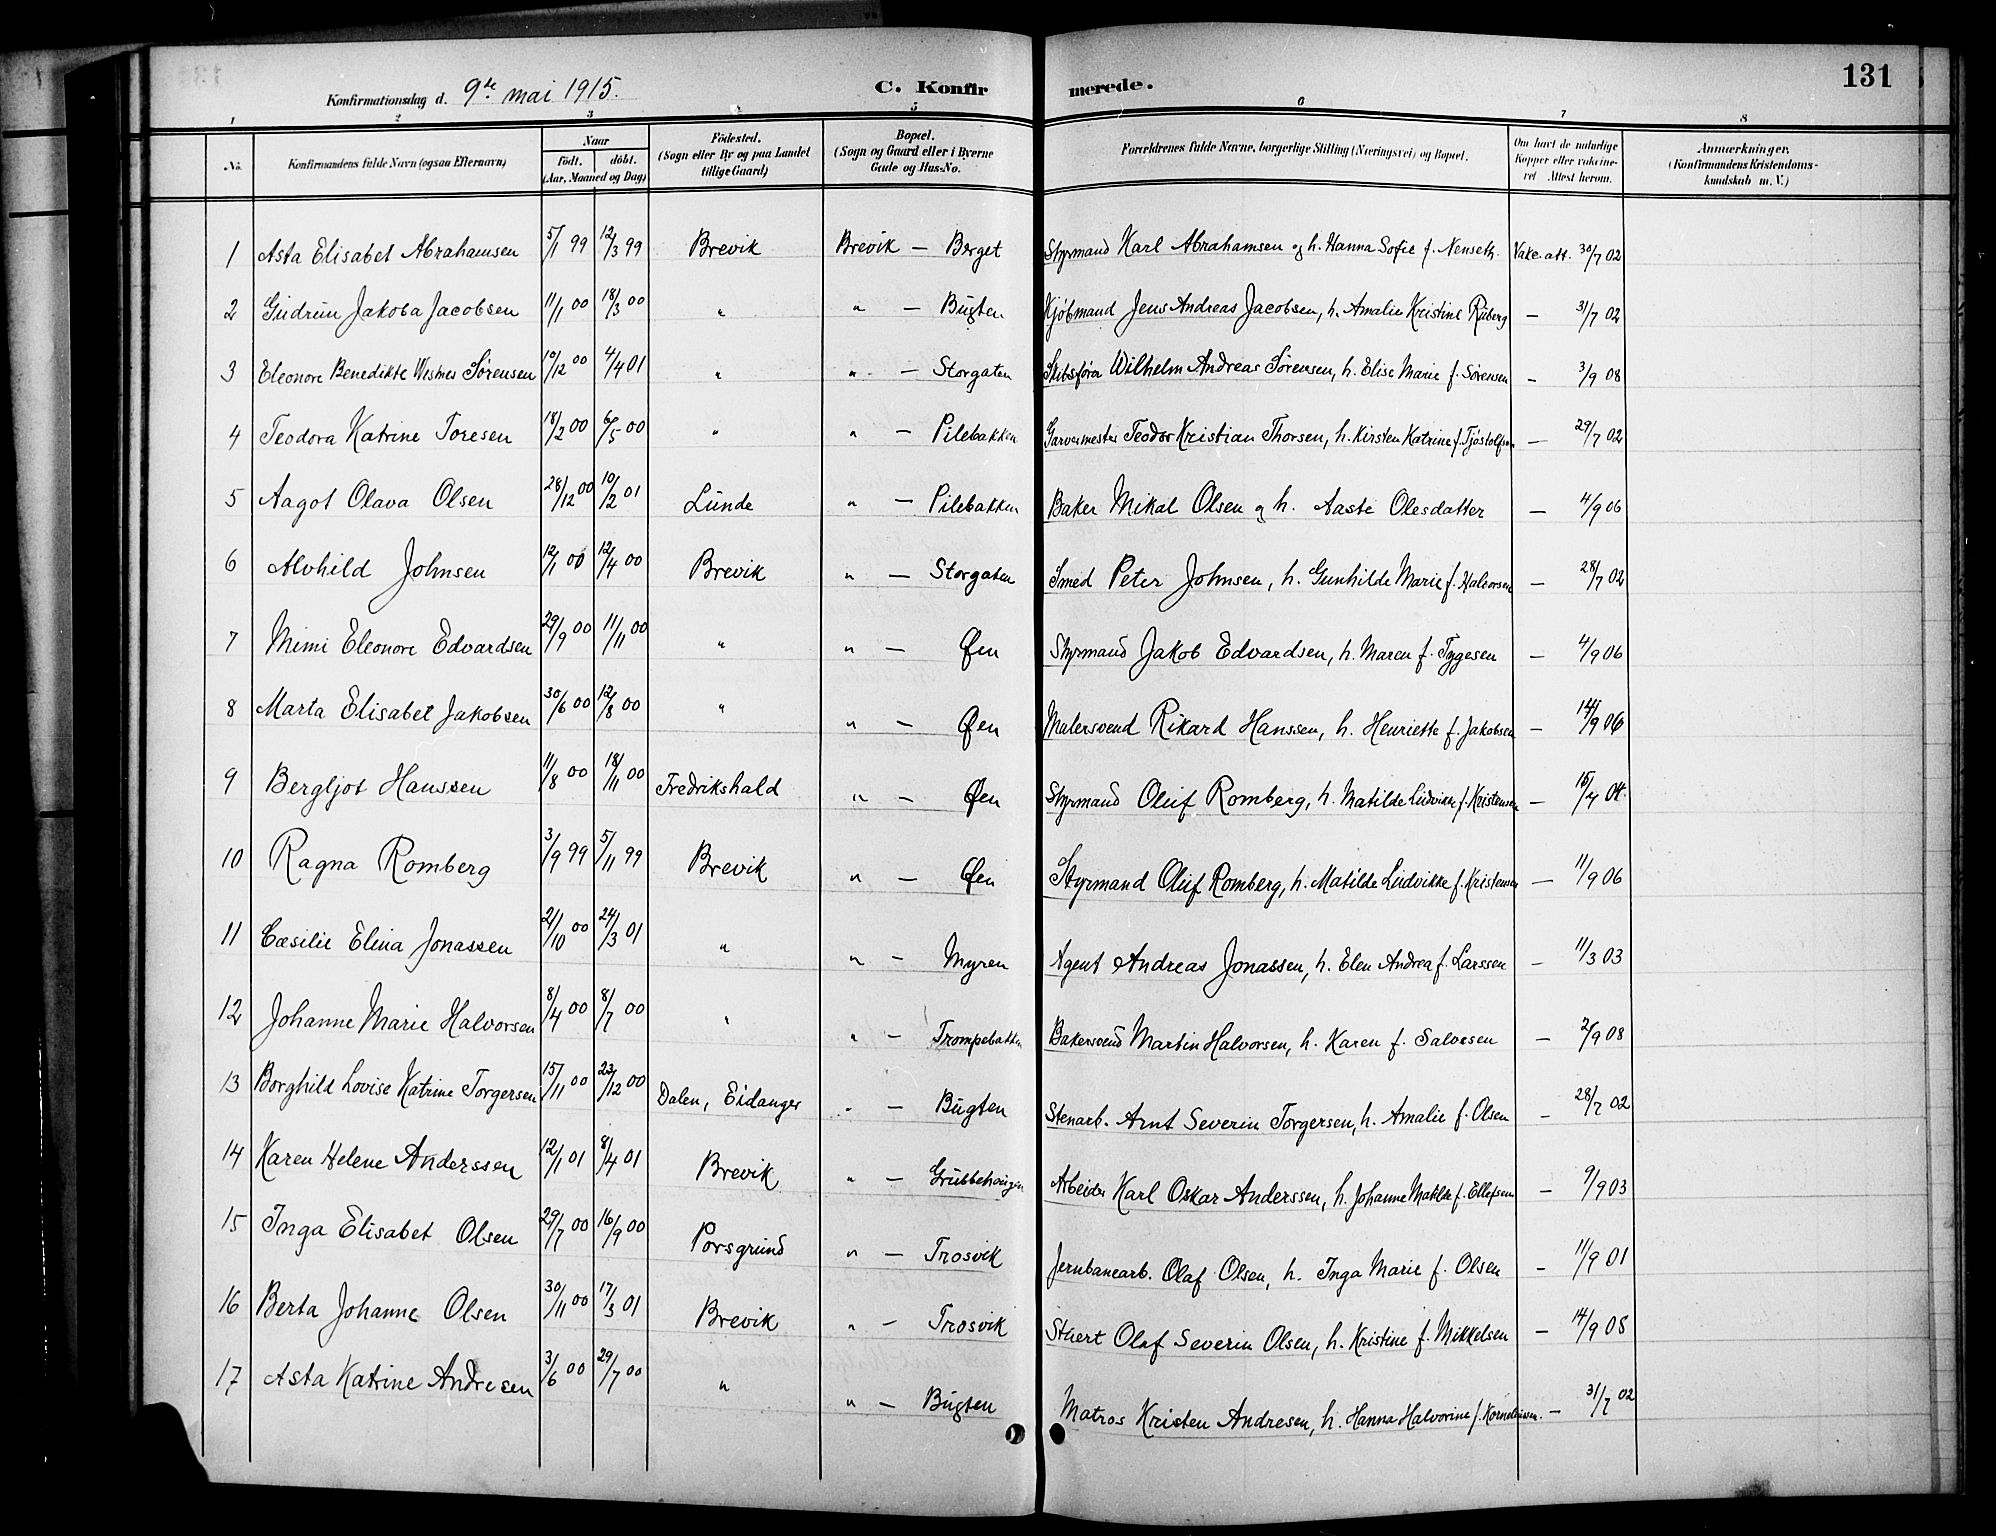 131
Konfirmationsdag d. 9de mai 1915.
C. Konfirmerede.
1 2 3 4 5 6 7 8
No. | Konfirmandens fulde Navn (ogsaa Efternavn) | Naar födt. döbt. (Aar, Maaned og Dag) | Födested. (Sogn eller By og paa Landet tillige Gaard) | Bopæl. (Sogn og Gaard eller i Byerne Gade og Hus-No. | Forældrenes fulde Navne, borgerlige Stilling (Næringsvei) og Bopæl. | Om havt de naturlige Kopper eller vakcineret Attest herom. | Anmærkninger. (Konfirmandens Kristendomskundskab m. V.)
1 Asta Elisabet Abrahamsen 5/1 99 12/3 99 Brevik Brevik — Berget Styrmand Karl Abrahamsen og h. Hanna Sofie f. Nenseth. Vakc. att. 30/7 02
2 Gudrun Jakoba Jacobsen 11/1 00 18/3 00 " " — Bugten Kjöbmand Jens Andreas Jacobsen, h. Amalie Kristine Ruberg — 31/7 02
3 Eleonore Benedikte Sørensen 10/12 00 4/4 01 " " — Storgaten Skibsförer Wilhelm Andreas Sörensen, h. Elise Marie f. Sørensen — 3/9 08
4 Teodora Katrine Toresen 18/2 00 6/5 00 " " — Pilebakken Garvermester Teodor Kristian Thorsen, h. Kirsten Katrine f. Tjöstolfsen — 29/7 02
5 Aagot Olava Olsen 28/12 00 10/2 01 Lunde " — Pilebakken Baker Mikal Olsen og h. Aaste Olesdatter — 4/9 06
6 Alvhild Johnsen 12/1 00 12/4 00 Brevik " — Storgaten Smed Peter Johnsen, h. Gunhilde Marie f. Halvorsen — 28/7 02
7 Mimi Eleonore Edvardsen 29/9 00 11/11 00 " " — Øen Styrmand Jakob Edvardsen, h. Maren f. Tygesen — 4/9 06
8 Marta Elisabet Jakobsen 30/6 00 12/8 00 " " — Øen Malersvend Rikard Hanssen, h. Henriette f. Jakobsen — 14/9 06
9 Bergljot Hanssen 11/8 00 18/11 00 Fredrikshald " — Øen Styrmand Oluf Romberg, h. Matilde Ludvikke f. Kristensen —
10 Ragna Romberg 3/9 99 5/11 99 Brevik " — Øen Styrmand Oluf Romberg, h. Matilde Ludvikke f. Kristensen — 11/9 06
11 Cæsilie Elina Jonassen 21/10 00 24/3 01 " " — Myren Agent Andreas Jonassen, h. Elen Andrea f. Larssen — 11/3 03
12 Johanne Marie Halvorsen 8/4 00 8/7 00 " " — Trompebakken Bakersvend Martin Halvorsen, h. Karen f. Salvesen — 2/9 08
13 Borghild Lovise Katrine Torgersen 15/11 00 23/12 00 Dalen, Eidanger " — Bugten Stenarb. Arnt Severin Torgersen, h. Amalie f. Olsen — 28/7 02
14 Karen Helene Anderssen 12/1 01 8/4 01 Brevik " — Grubbehaugen Arbeider Karl Oskar Anderssen, h. Johanne Matilde f. Ellefsen — 9/9 03
15 Inga Elisabet Olsen 29/7 00 16/9 00 Porsgrund " — Trosvik Jernbanearb. Olaf Olsen, h. Inga Marie f. Olsen — 11/9 01
16 Berta Johanne Olsen 30/11 00 17/3 01 Brevik " — Trosvik Stuert Olaf Severin Olsen, h. Kristine f. Mikkelsen — 14/9 08
17 Asta Katrine Andresen 3/6 00 29/7 00 " " — Bugten Matros Kristen Andresen, h. Hanna Halvorine f. Korneliusen. — 31/7 02